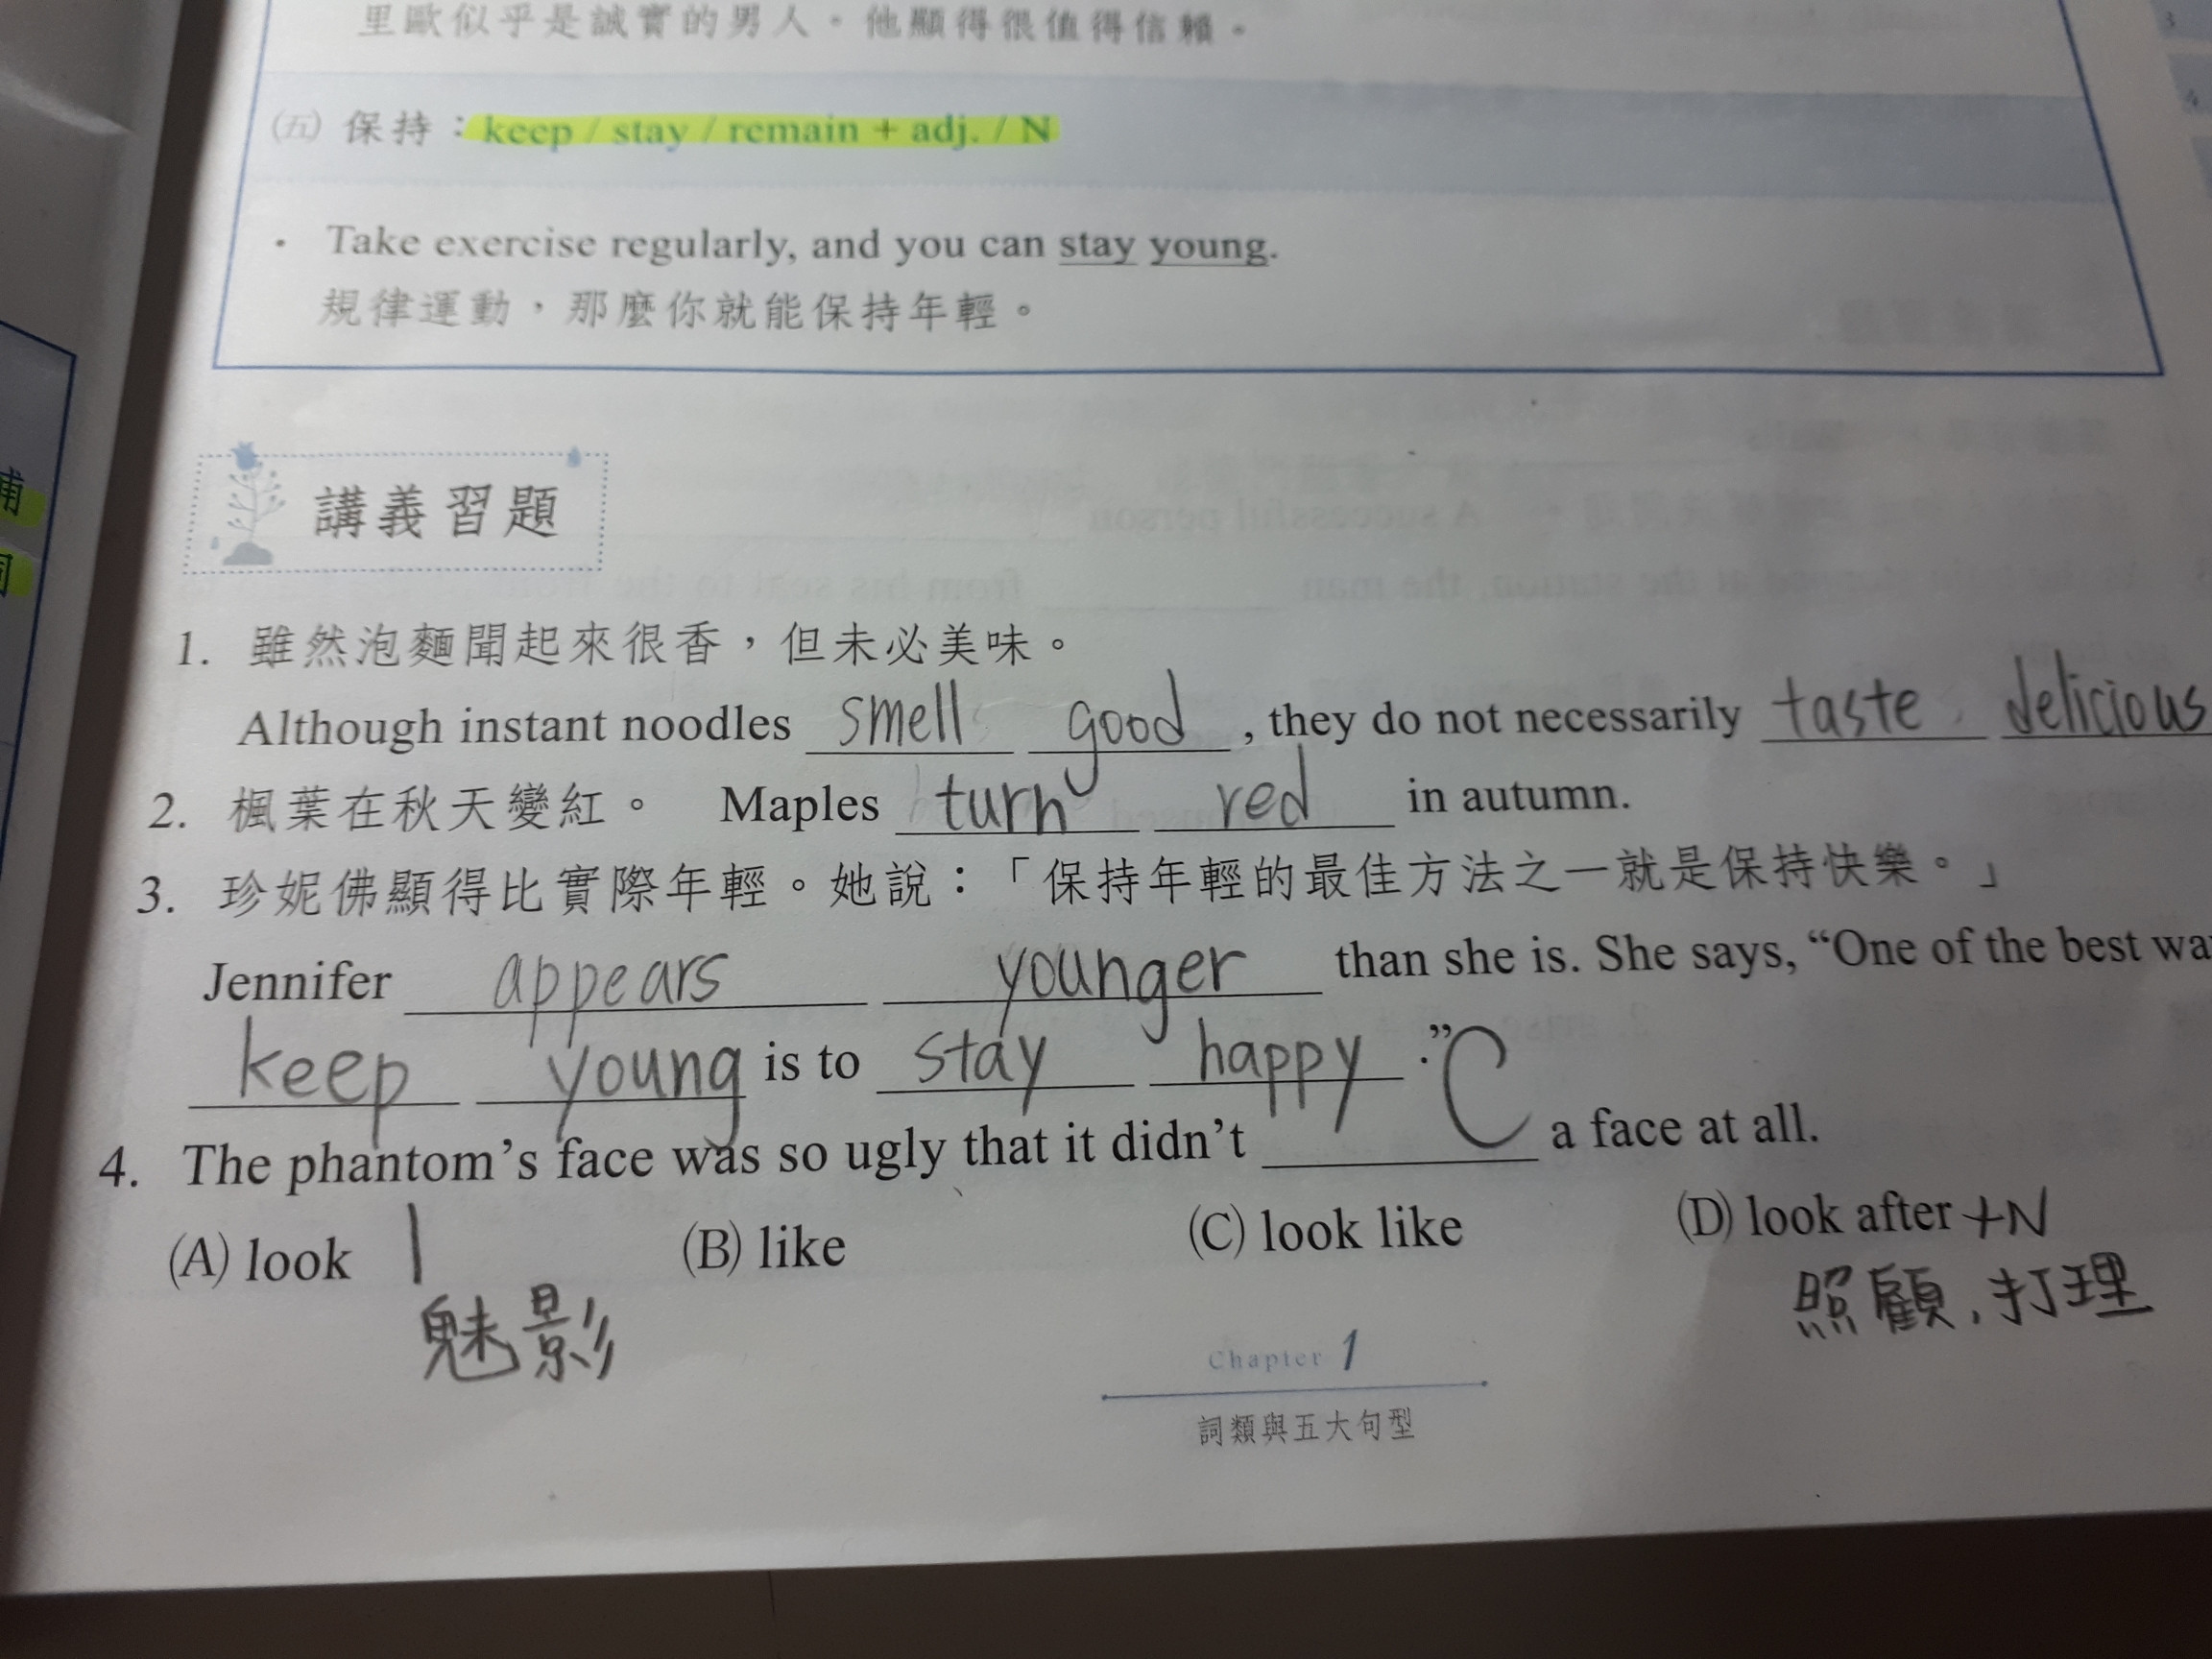 里歐似乎是誠實的男人。他顯得很值得信賴。
㈤ 保持：keep / stay / remain + adj. / N
• Take exercise regularly, and you can stay young.
規律運動，那麼你就能保持年輕。
講義習題
1. 雖然泡麵聞起來很香，但未必美味。
Although instant noodles smell good, they do not necessarily taste delicious
2. 楓葉在秋天變紅。 Maples turn red in autumn.
3. 珍妮佛顯得比實際年輕。她說：「保持年輕的最佳方法之一就是保持快樂。」
Jennifer appears younger than she is. She says, “One of the best
keep young is to stay happy.”
4. The phantom’s face was so ugly that it didn’t C a face at all.
(A) look (B) like (C) look like (D) look after +N
魅影 照顧，打理
Chapter 1
詞類與五大句型